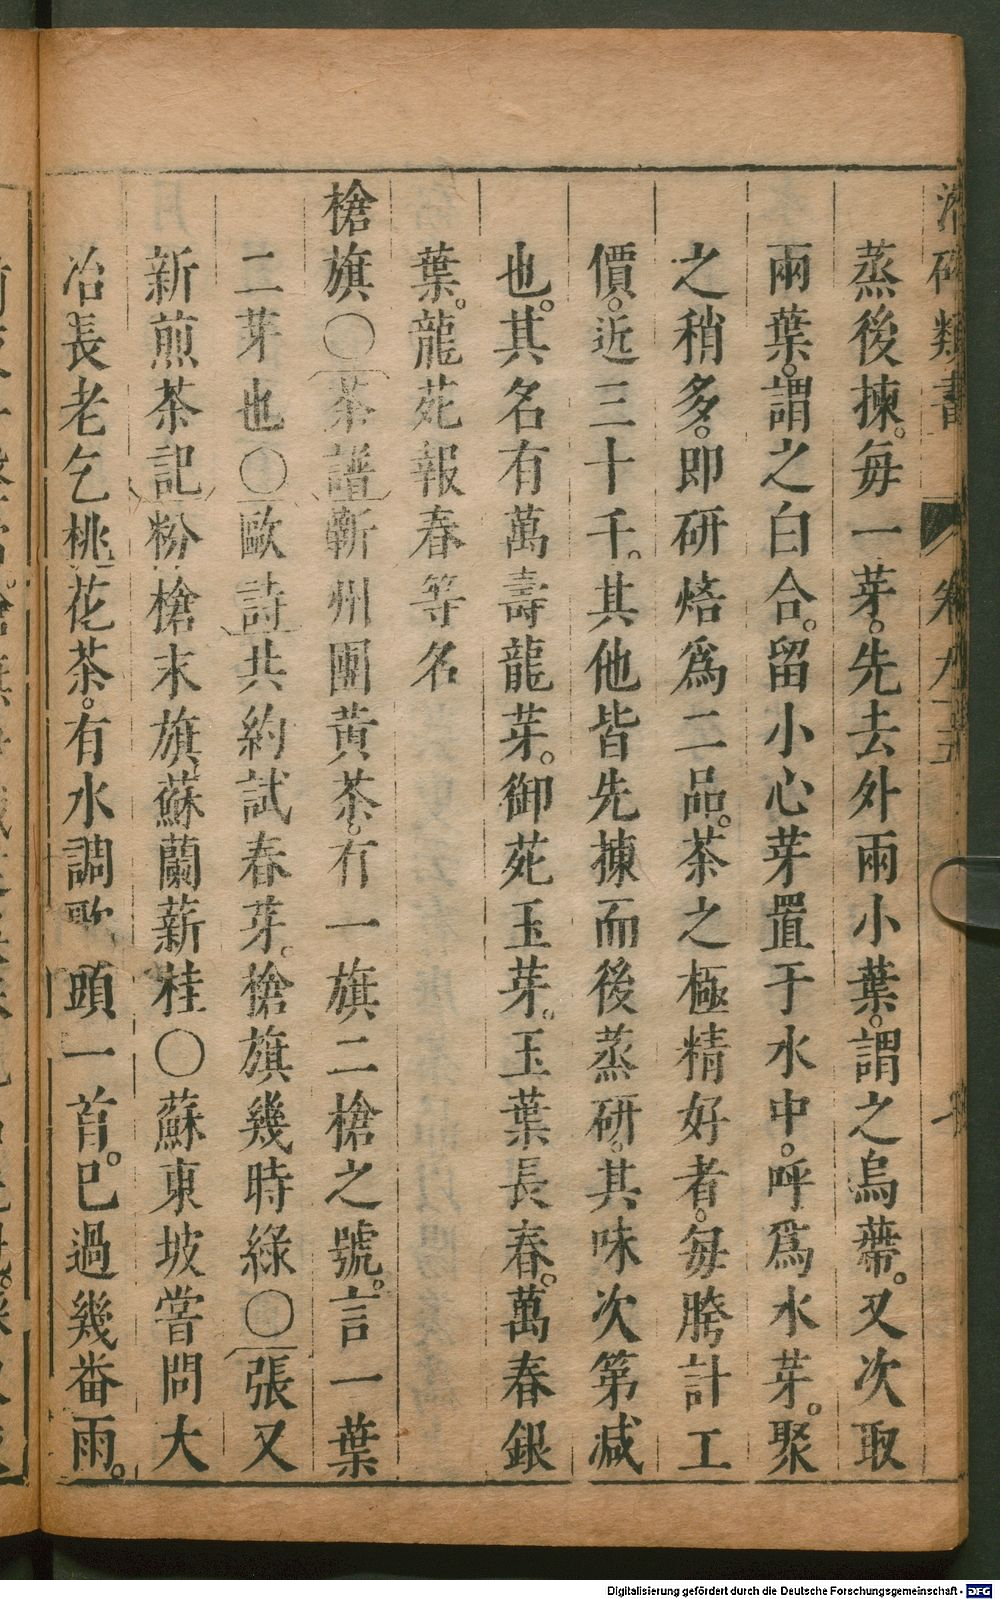 類書 卷九
蒸後揀。每一芽。先去外兩小葉。謂之烏蔕。又次取
兩葉。謂之白合。留小心芽置于水中。呼爲水芽。聚
之稍多。卽研焙爲二品。茶之極精好者。每胯計工
價。近三十千。其他皆先揀而後蒸研。其味次第减
也。其名有萬壽龍芽。御苑玉芽。玉葉長春。萬春銀
葉。龍苑報春等名
槍旗〇茶譜蘄州團黃茶。有一旗二槍之號。言一葉
二芽也〇歐詩共約試春芽。槍旗幾時綠〇張又
新煎茶記粉槍末旗蘇蘭薪桂〇蘇東坡嘗問大
冶長老乞桃花茶。有水調歌頭一首。已過幾番雨。
Digitalisierung gefördert durch die Deutsche Forschungsgemeinschaft - DFG